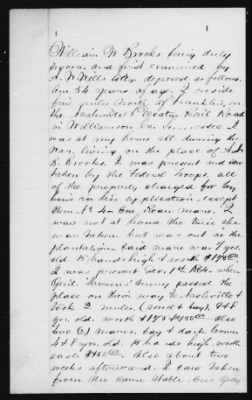 William W Brooks being duly
sworn and first examined by
A. W. Wills Atty deposed as follows.
Am 34 years of age. I reside
five miles North of Franklin, on
the Nashville & Decatur Rail Road
in Williamson Co.
was at my home all during the
War, living on the place of
Brooks. I was present and saw
taken by the Federal troops, all
of the property charged for by
him in his application except
Item No 4. One Roan Mare. I
was not at home the time she
was taken but was out in the
plantation. Said mare was 7 yrs
old 15 hands high & worth
I was present Dec. 1st 1864. when
Genl. Thomas' Army passed the
place on their way to Nashville &
took 2 mules, 7 & 8
yrs. old. worth also
two (2) mares, bay & dark brown
4 & 8 yrs old. 15 hands high, worth
each Also about two
weeks afterward. I saw taken
from the same Stable. One Gray